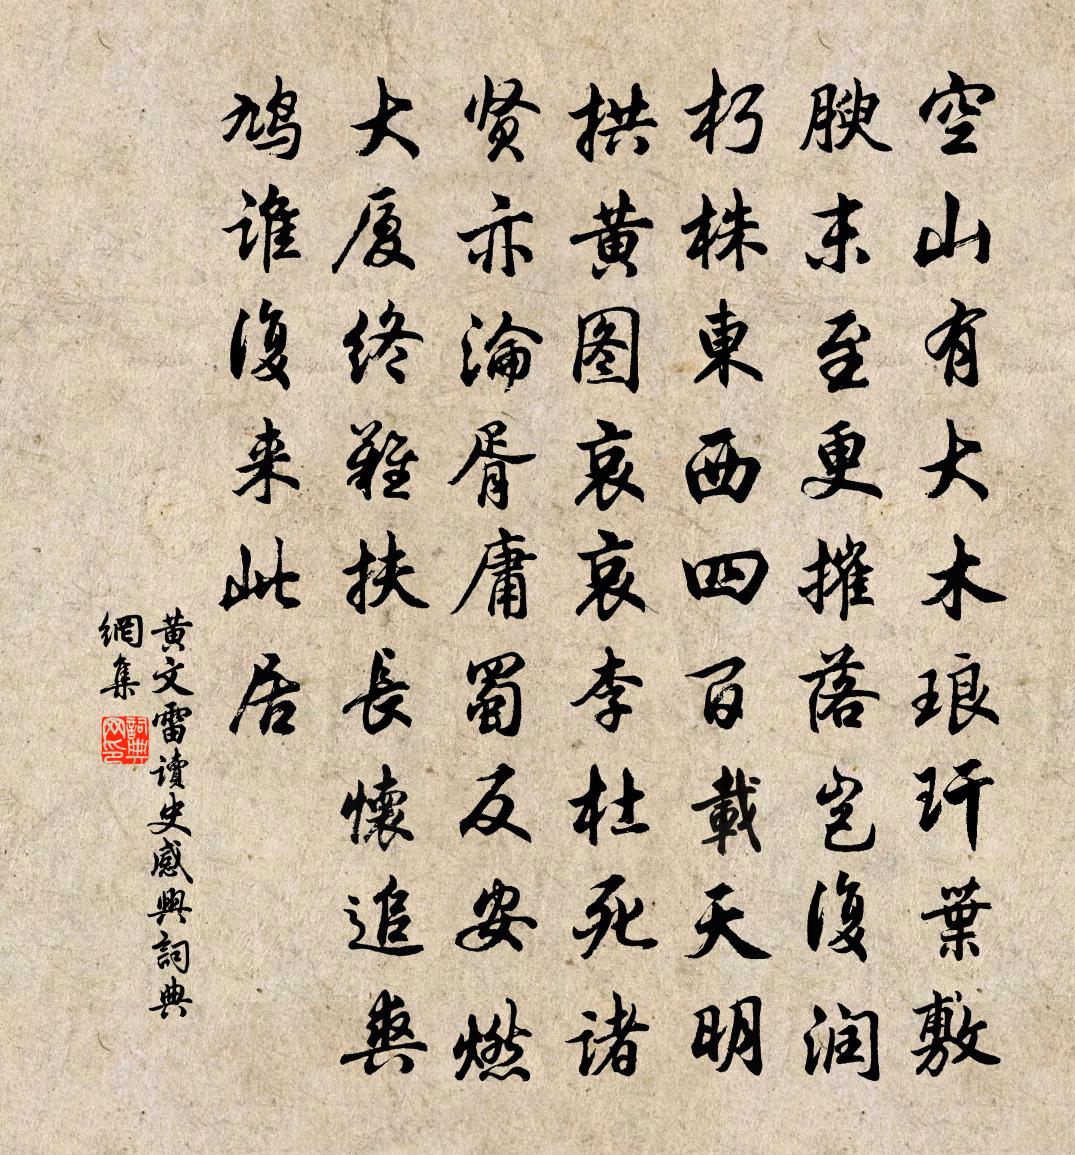 空山有大木琅玕葉敷
腴末至更摧落岂復润
朽株東西四百載天明
拱黄图哀哀李杜死诸
贤亦淪胥庸蜀反安燃
大厦终難扶長懷追爽
鸠谁復来此居
黄文雷讀史感興詞典
網集
詞典网印